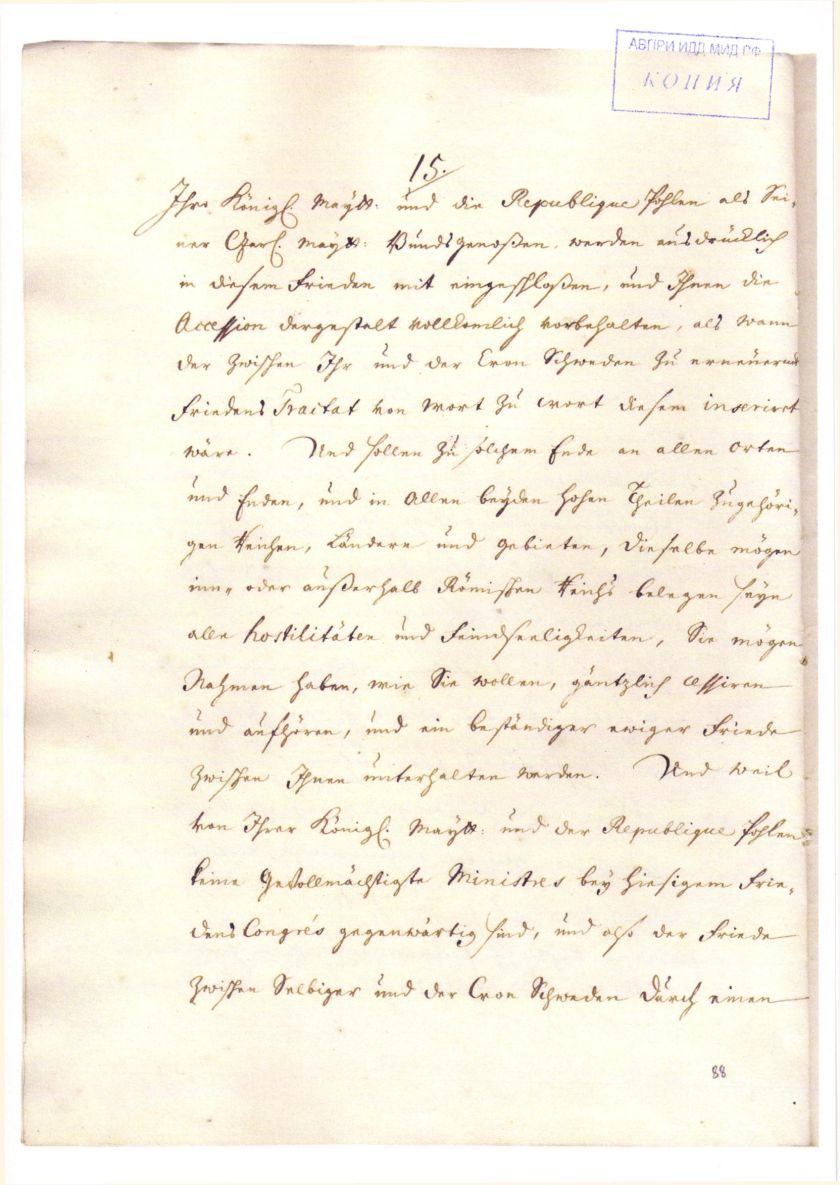 АВПРИ ИДД МИД РФ
КОПИЯ
15.
Ihro Königl. Maytt: und die Republique Pohlen als Sei-
ner Czarl. Maytt: Bundsgenoßen, werden ausdrücklich
in diesem Frieden mit eingeschloßen, und Ihnen die
Accession dergestalt vollkomlich vorbehalten, als wann
der zwischen Ihr und der Cron Schweden zu erneüernde
Friedens Tractat von Wort zu Wort diesem inseriret
wäre. Und sollen zu solchem Ende an allen Orten
und Enden, und in Allen beyden hohen Theilen zugehöri-
gen Reichen, Ländern und Gebieten, dieselbe mögen
inn- oder außerhalb Römischen Reichs belegen seyn
alle hostilitäten und Feindseeligkeiten, Sie mögen
Nahmen haben, wie Sie wollen, gäntzlich cessiren
und aufhören, und ein beständiger ewiger Friede
zwischen Ihnen unterhalten werden. Und weil
von Ihrer Königl. Maytt: und der Republique Pohlen
keine Gevollmächtigte Ministres bey hiesigem Frie-
dens Congrés gegenwärtig sind, und also der Friede
zwischen Selbiger und der Cron Schweden durch einen
88